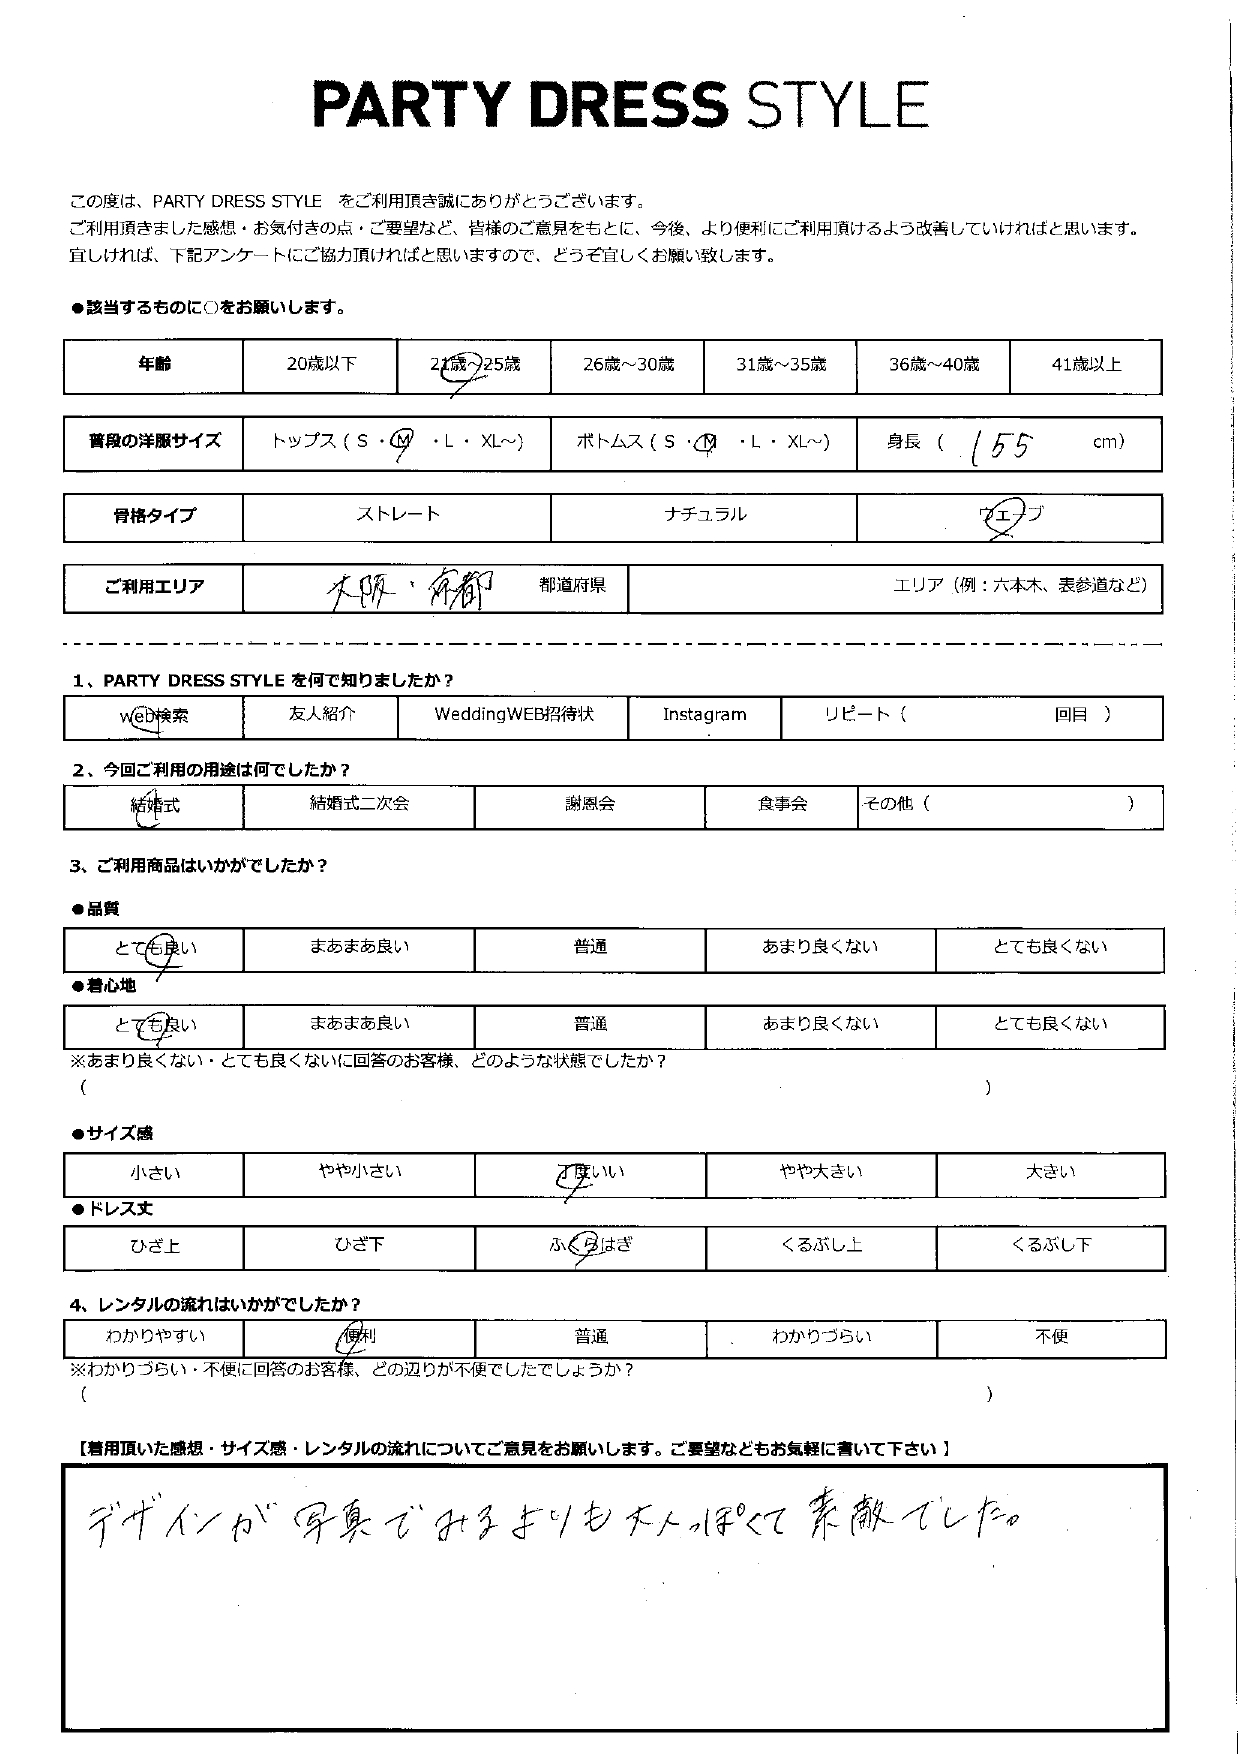 PARTY DRESS STYLE
この度は、PARTY DRESS STYLE をご利用頂き誠にありがとうございます。
ご利用頂きました感想・お気付きの点・ご要望など、皆様のご意見をもとに、今後、より便利にご利用頂けるよう改善していければと思います。
宜しければ、下記アンケートにご協力頂ければと思いますので、どうぞ宜しくお願い致します。
●該当するものに○をお願いします。
年齢 20歳以下 21歳～25歳 26歳～30歳 31歳～35歳 36歳～40歳 41歳以上
普段の洋服サイズ トップス ( S ・ M ・ L ・ XL～) ボトムス ( S ・ M ・ L ・ XL～) 身長 ( 155 cm)
骨格タイプ ストレート ナチュラル ウェーブ
ご利用エリア 大阪・京都 都道府県 エリア（例：六本木、表参道など）
1、PARTY DRESS STYLE を何で知りましたか？
web検索 友人紹介 WeddingWEB招待状 Instagram リピート（ 回目 ）
2、今回ご利用の用途は何でしたか？
結婚式 結婚式二次会 謝恩会 食事会 その他（ ）
3、ご利用商品はいかがでしたか？
●品質
とても良い まあまあ良い 普通 あまり良くない とても良くない
●着心地
とても良い まあまあ良い 普通 あまり良くない とても良くない
※あまり良くない・とても良くないに回答のお客様、どのような状態でしたか？
（ ）
●サイズ感
小さい やや小さい 丁度いい やや大きい 大きい
●ドレス丈
ひざ上 ひざ下 ふくらはぎ くるぶし上 くるぶし下
4、レンタルの流れはいかがでしたか？
わかりやすい 便利 普通 わかりづらい 不便
※わかりづらい・不便に回答のお客様、どの辺りが不便でしたでしょうか？
（ ）
【着用頂いた感想・サイズ感・レンタルの流れについてご意見をお願いします。ご要望などもお気軽に書いて下さい 】
デザインが写真でみるよりも大人っぽくて素敵でした。